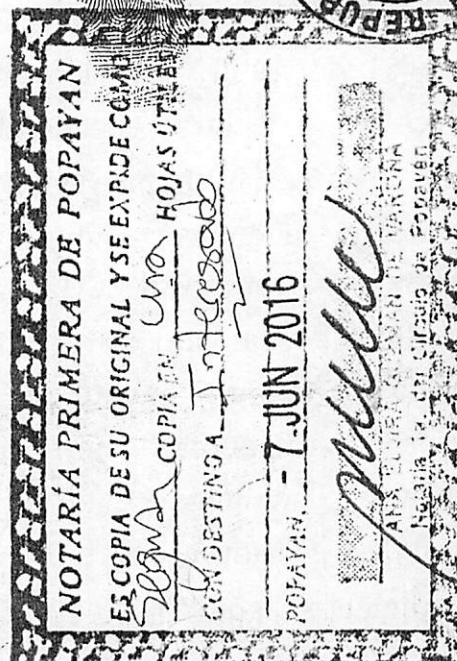 REPUB
NOTARÍA PRIMERA DE POPAYAN
ES COPIA DE SU ORIGINAL Y SE EXPIDE COMO
Segunda COPIA EN Una HOJAS ÚTILES
CON DESTINO A Interesado
POPAYAN, - 7 JUN 2016
ANA ELVIRA DE
Notaria 1a. del Círculo de Popayán